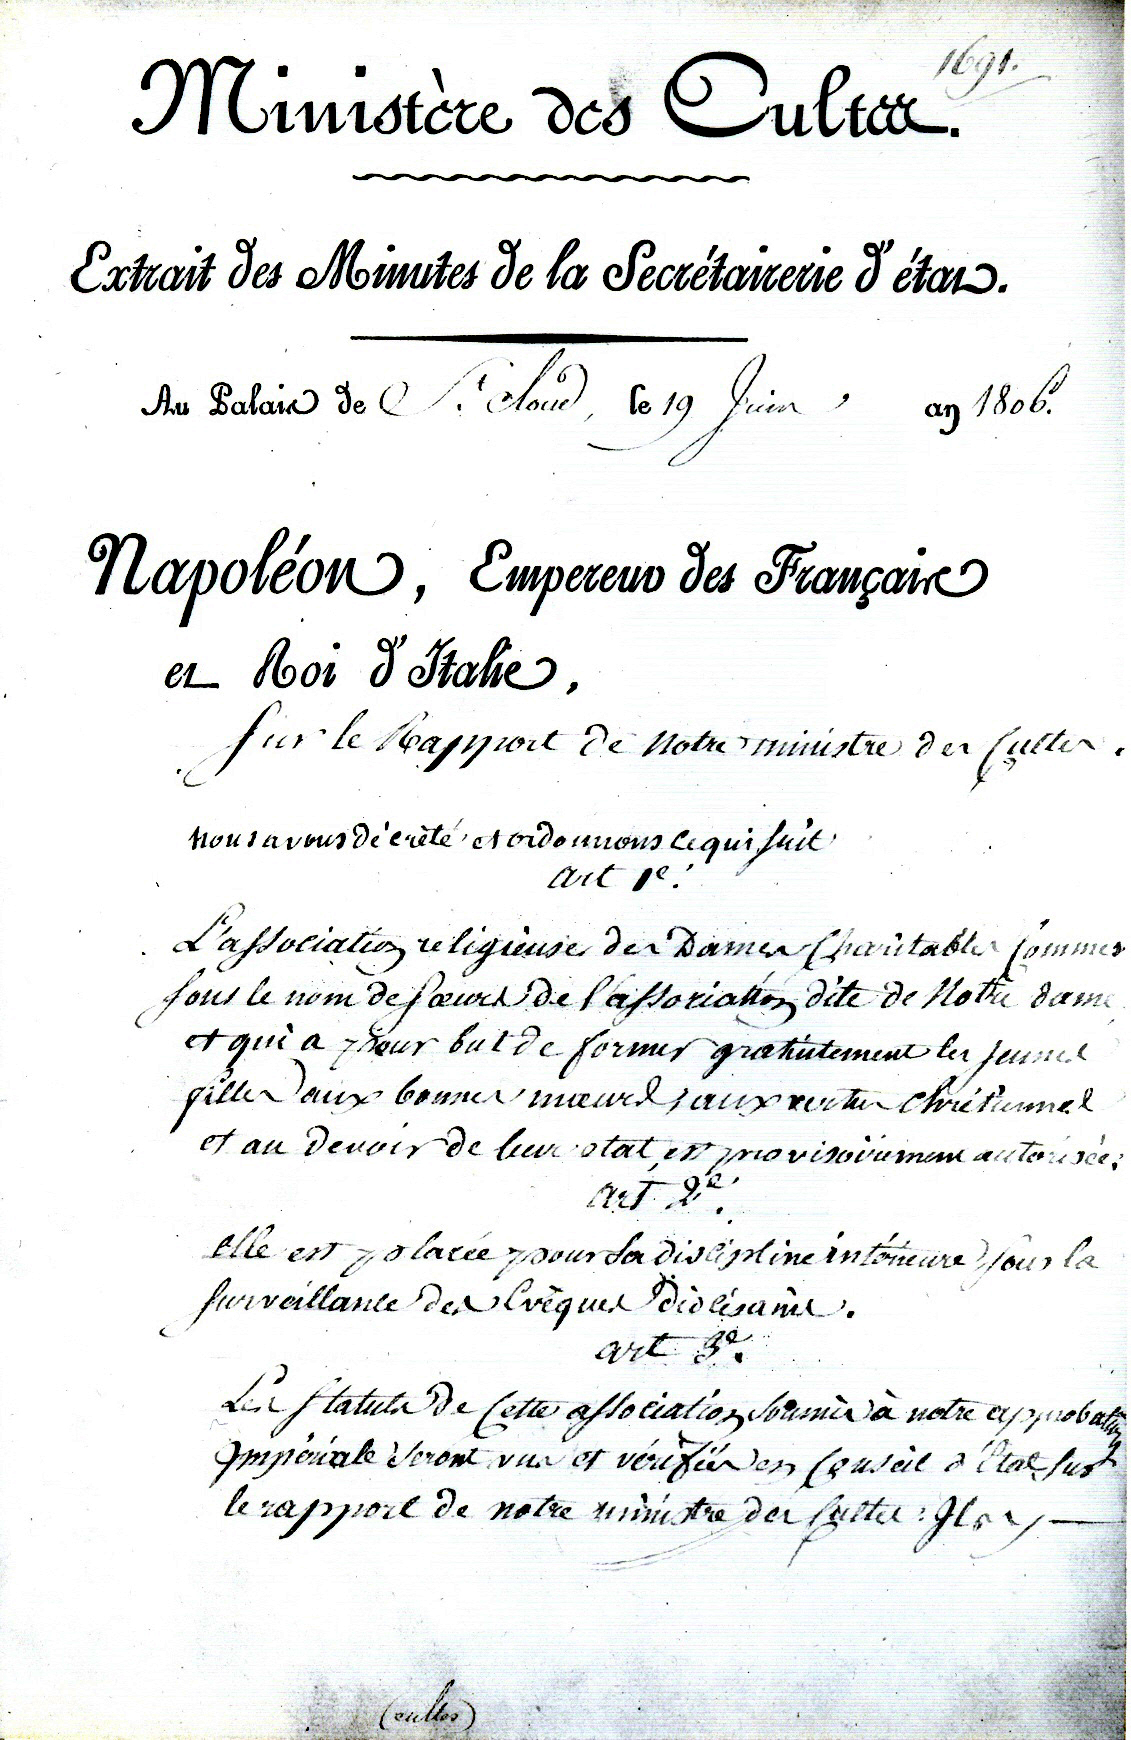 1691.
Ministère des Cultes.
Extrait des Minutes de la Secrétairerie d'état.
Au Palais de St. Cloud, le 19 Juin an 1806.
Napoléon, Empereur des Français
et Roi d'Italie,
Sur le Rapport de notre ministre des Cultes.
nous avons décrété et ordonnons ce qui suit
art 1e.
L'association religieuse des Dames Charitables Connues
sous le nom de sœurs de l'association dite de Notre dame
et qui a pour but de former gratuitement les jeunes
filles aux bonnes mœurs, aux vertus chrétiennes
et au devoir de leur état, est provisoirement autorisée;
art 2e.
elle est placée pour sa discipline intérieure sous la
surveillance des Evêques diocésains.
art 3e.
Les Statuts de cette association soumis à notre approbation
Impériale seront vus et vérifiés en Conseil d'Etat sur
le rapport de notre ministre des Cultes: Ils
(cultes)